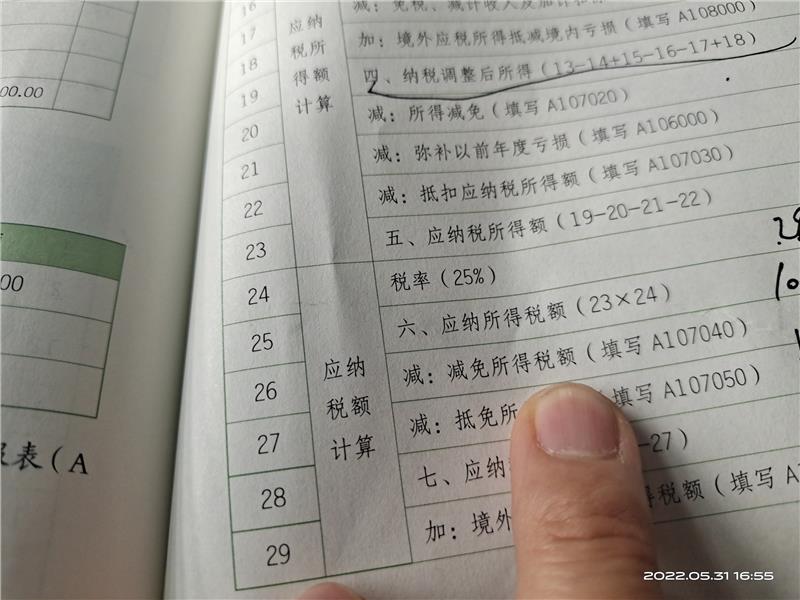 00.00
00
报表（A
16 减：免税、减计收入及加计扣除
17 加：境外应税所得抵减境内亏损（填写 A108000）
18 四、纳税调整后所得（13-14+15-16-17+18）
19 减：所得减免（填写 A107020）
20 减：弥补以前年度亏损（填写 A106000）
21 减：抵扣应纳税所得额（填写 A107030）
22 五、应纳税所得额（19-20-21-22）
23
应纳
税所
得额
计算
24 税率（25%）
25 六、应纳所得税额（23×24）
26 减：减免所得税额（填写 A107040）
27 减：抵免所 填写 A107050）
28 七、应纳 -27）
29 加：境外 得税额（填写 A1
应纳
税额
计算
2022.05.31 16:55